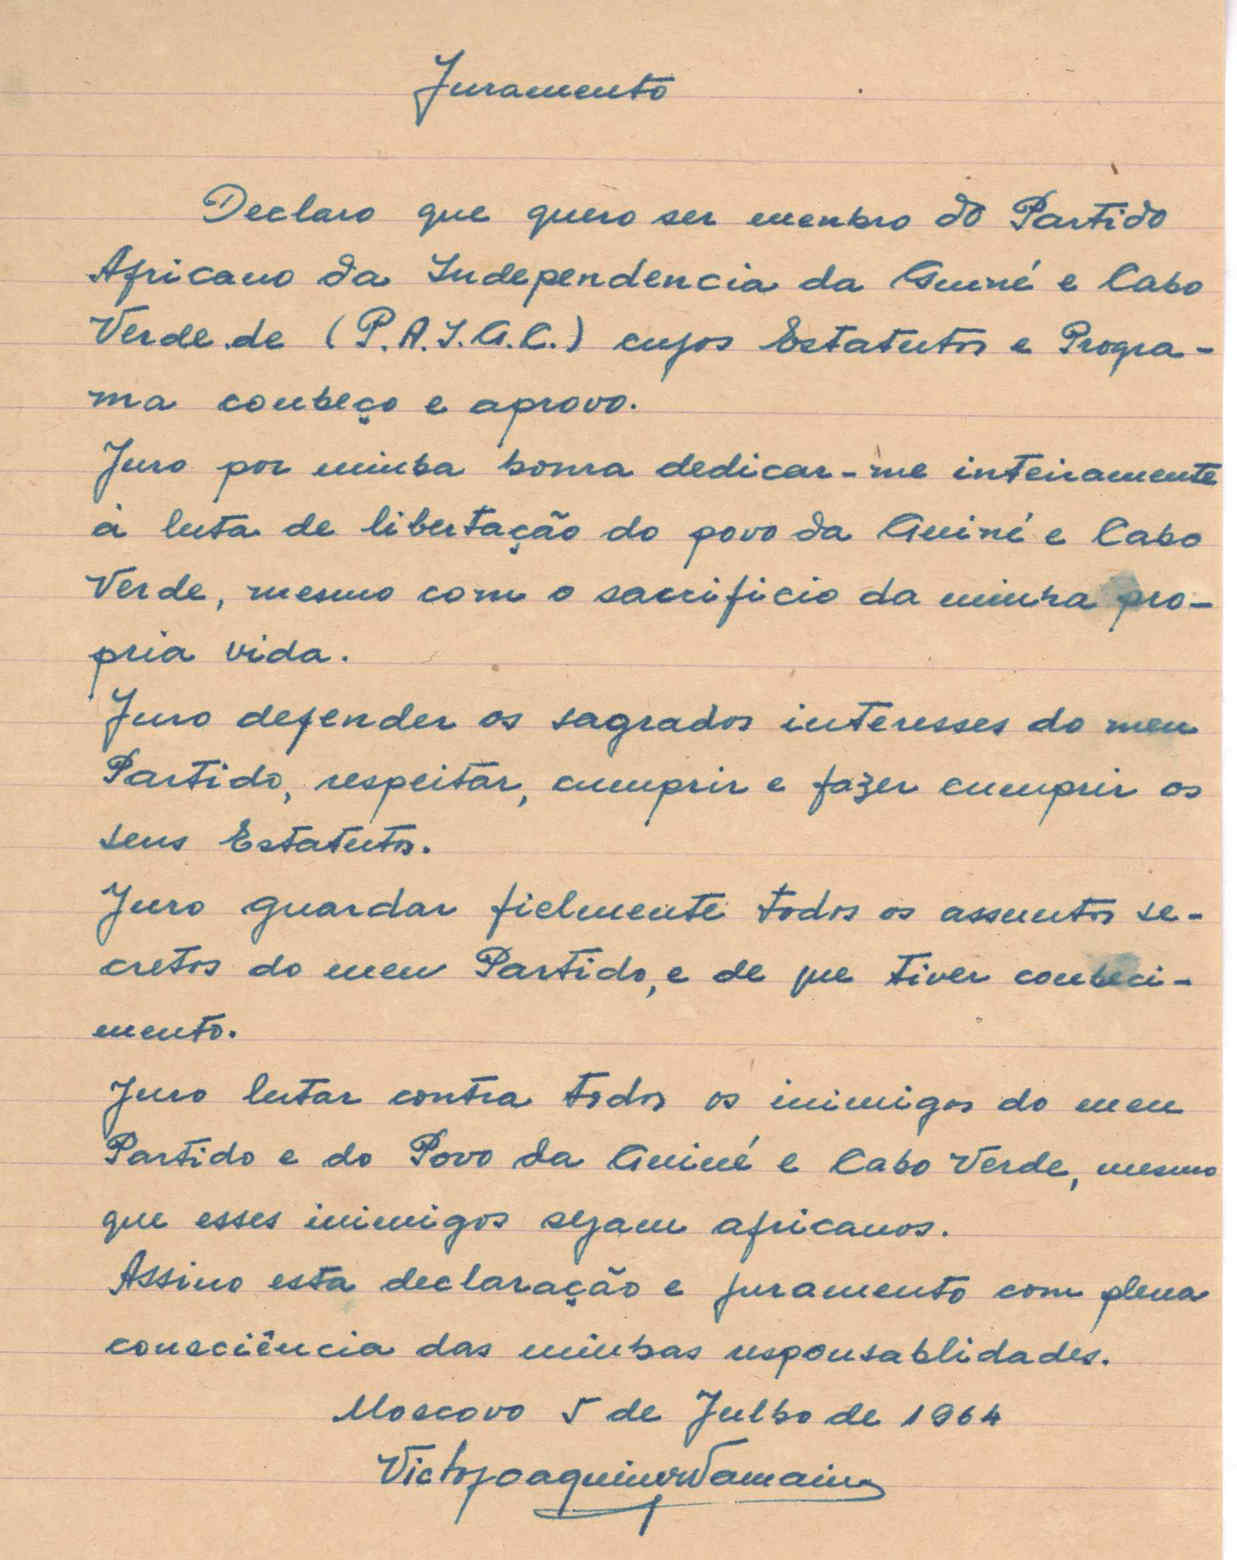 Juramento
Declaro que quero ser menbro do Partido
Africano da Independencia da Guiné e Cabo
Verde.de (P.A.I.G.C.) cujos Estatutos e Progra-
ma conheço e aprovo.
Juro por minha honra dedicar-me inteiramente
à luta de libertação do povo da Guiné e Cabo
Verde, mesmo com o sacrificio da minha pro-
pria vida.
Juro defender os sagrados interesses do meu
Partido, respeitar, cumprir e fazer cumprir os
seus Estatutos.
Juro guardar fielmente todos os assuntos se-
cretos do meu Partido, e de que tiver conheci-
mento.
Juro lutar contra todos os inimigos do meu
Partido e do Povo da Guiné e Cabo Verde, mesmo
que esses inimigos sejam africanos.
Assino esta declaração e juramento com plena
consciência das minhas responsablidades.
Moscovo 5 de Julho de 1964
Victor Joaquim